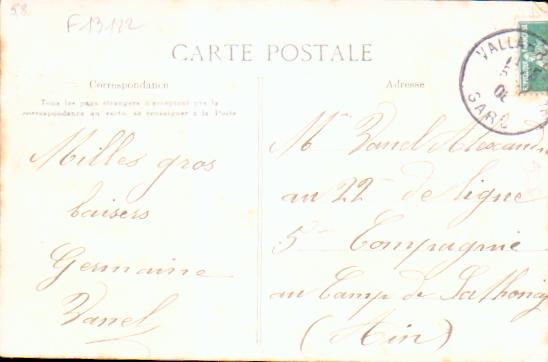 58
F 13122
CARTE POSTALE
Correspondance
Tous les pays étrangers n'acceptent pas la
correspondance au recto, se renseigner à la Poste
Milles gros
baisers
Germaine
Vanel
Adresse
VALLA
GARD
Mr Vanel Alexand
au 22e de ligne
5e Compagnie
au Camp de Sathonay
(Ain)